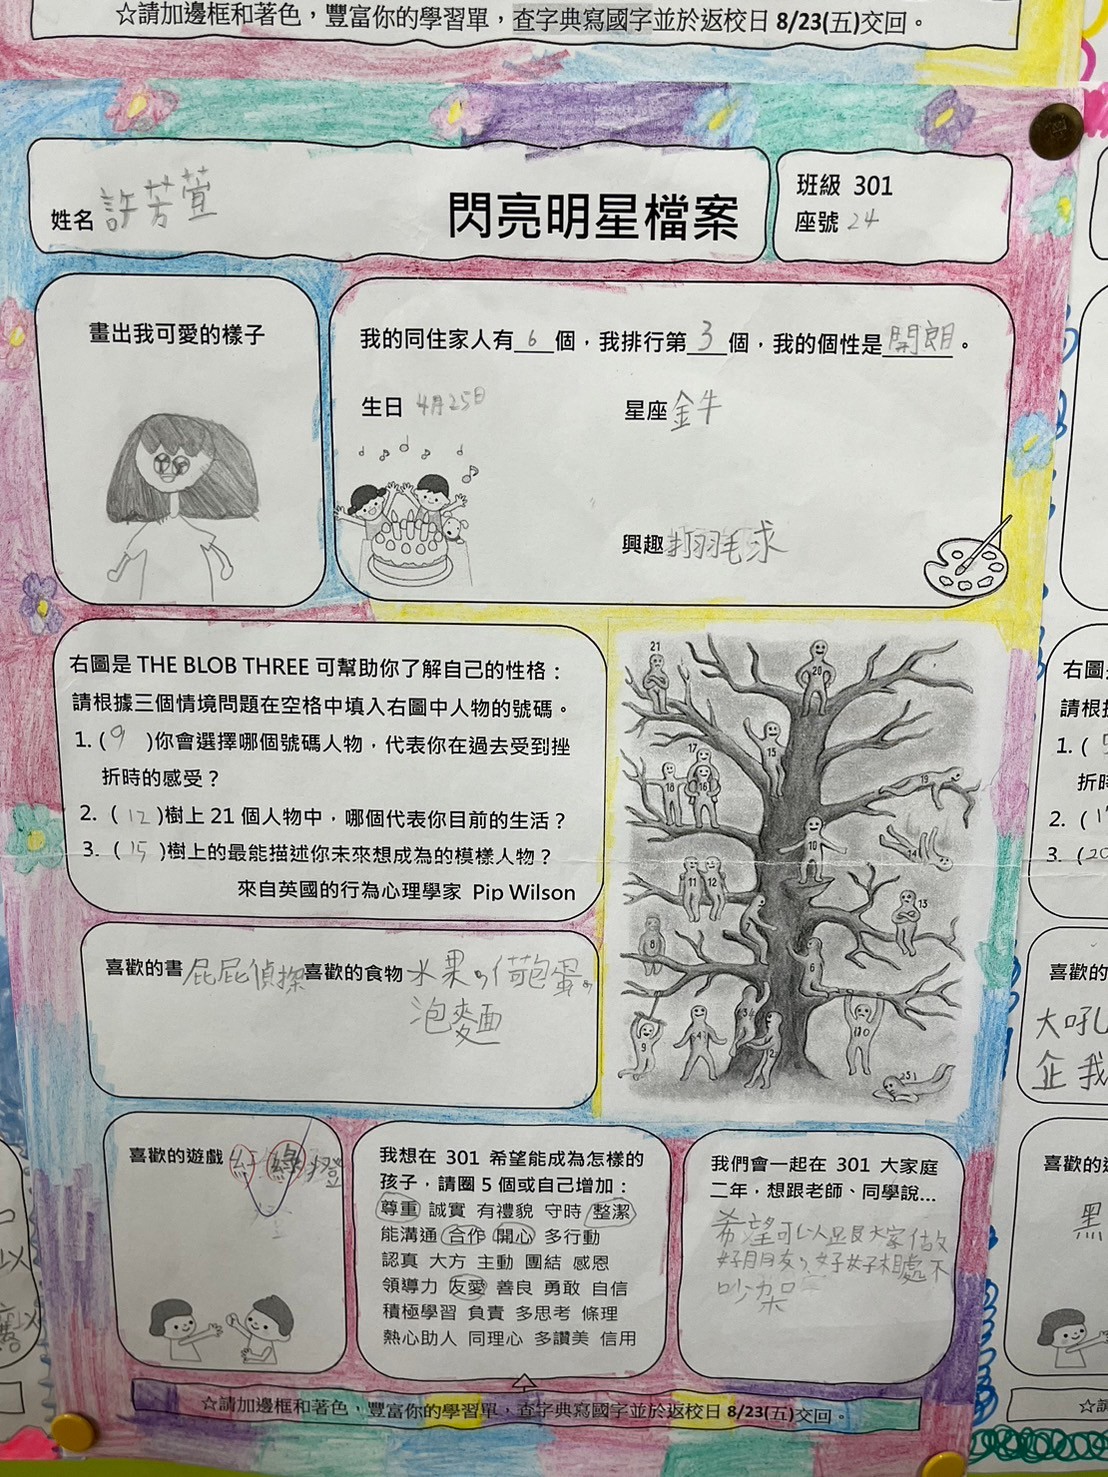 ☆請加邊框和著色，豐富你的學習單，查字典寫國字並於返校日 8/23(五)交回。
姓名 許芳萱
閃亮明星檔案
班級 301
座號 24
畫出我可愛的樣子
我的同住家人有 6 個，我排行第 3 個，我的個性是 開朗 。
生日 4月25日
星座 金牛
興趣 打羽毛球
右圖是 THE BLOB THREE 可幫助你了解自己的性格：
請根據三個情境問題在空格中填入右圖中人物的號碼。
1. ( 9 )你會選擇哪個號碼人物，代表你在過去受到挫
折時的感受？
2. ( 12 )樹上 21 個人物中，哪個代表你目前的生活？
3. ( 15 )樹上的最能描述你未來想成為的模樣人物？
來自英國的行為心理學家 Pip Wilson
21
20
17
15
18
16
19
10
14
11 12
13
8
6
9
4
3
2
喜歡的書 屁屁偵探
喜歡的食物 水果、荷包蛋、
泡麵
喜歡的遊戲 紅綠
我想在 301 希望能成為怎樣的
孩子，請圈 5 個或自己增加：
尊重 誠實 有禮貌 守時 整潔
能溝通 合作 開心 多行動
認真 大方 主動 團結 感恩
領導力 友愛 善良 勇敢 自信
積極學習 負責 多思考 條理
熱心助人 同理心 多讚美 信用
我們會一起在 301 大家庭
二年，想跟老師、同學說...
希望可以跟大家做
好朋友，好好相處不
吵架
☆請加邊框和著色，豐富你的學習單，查字典寫國字並於返校日 8/23(五)交回。
右圖
請根
1. (
折時
2. (
3. (20
喜歡的
大吼
企 我
喜歡的
黑
☆請